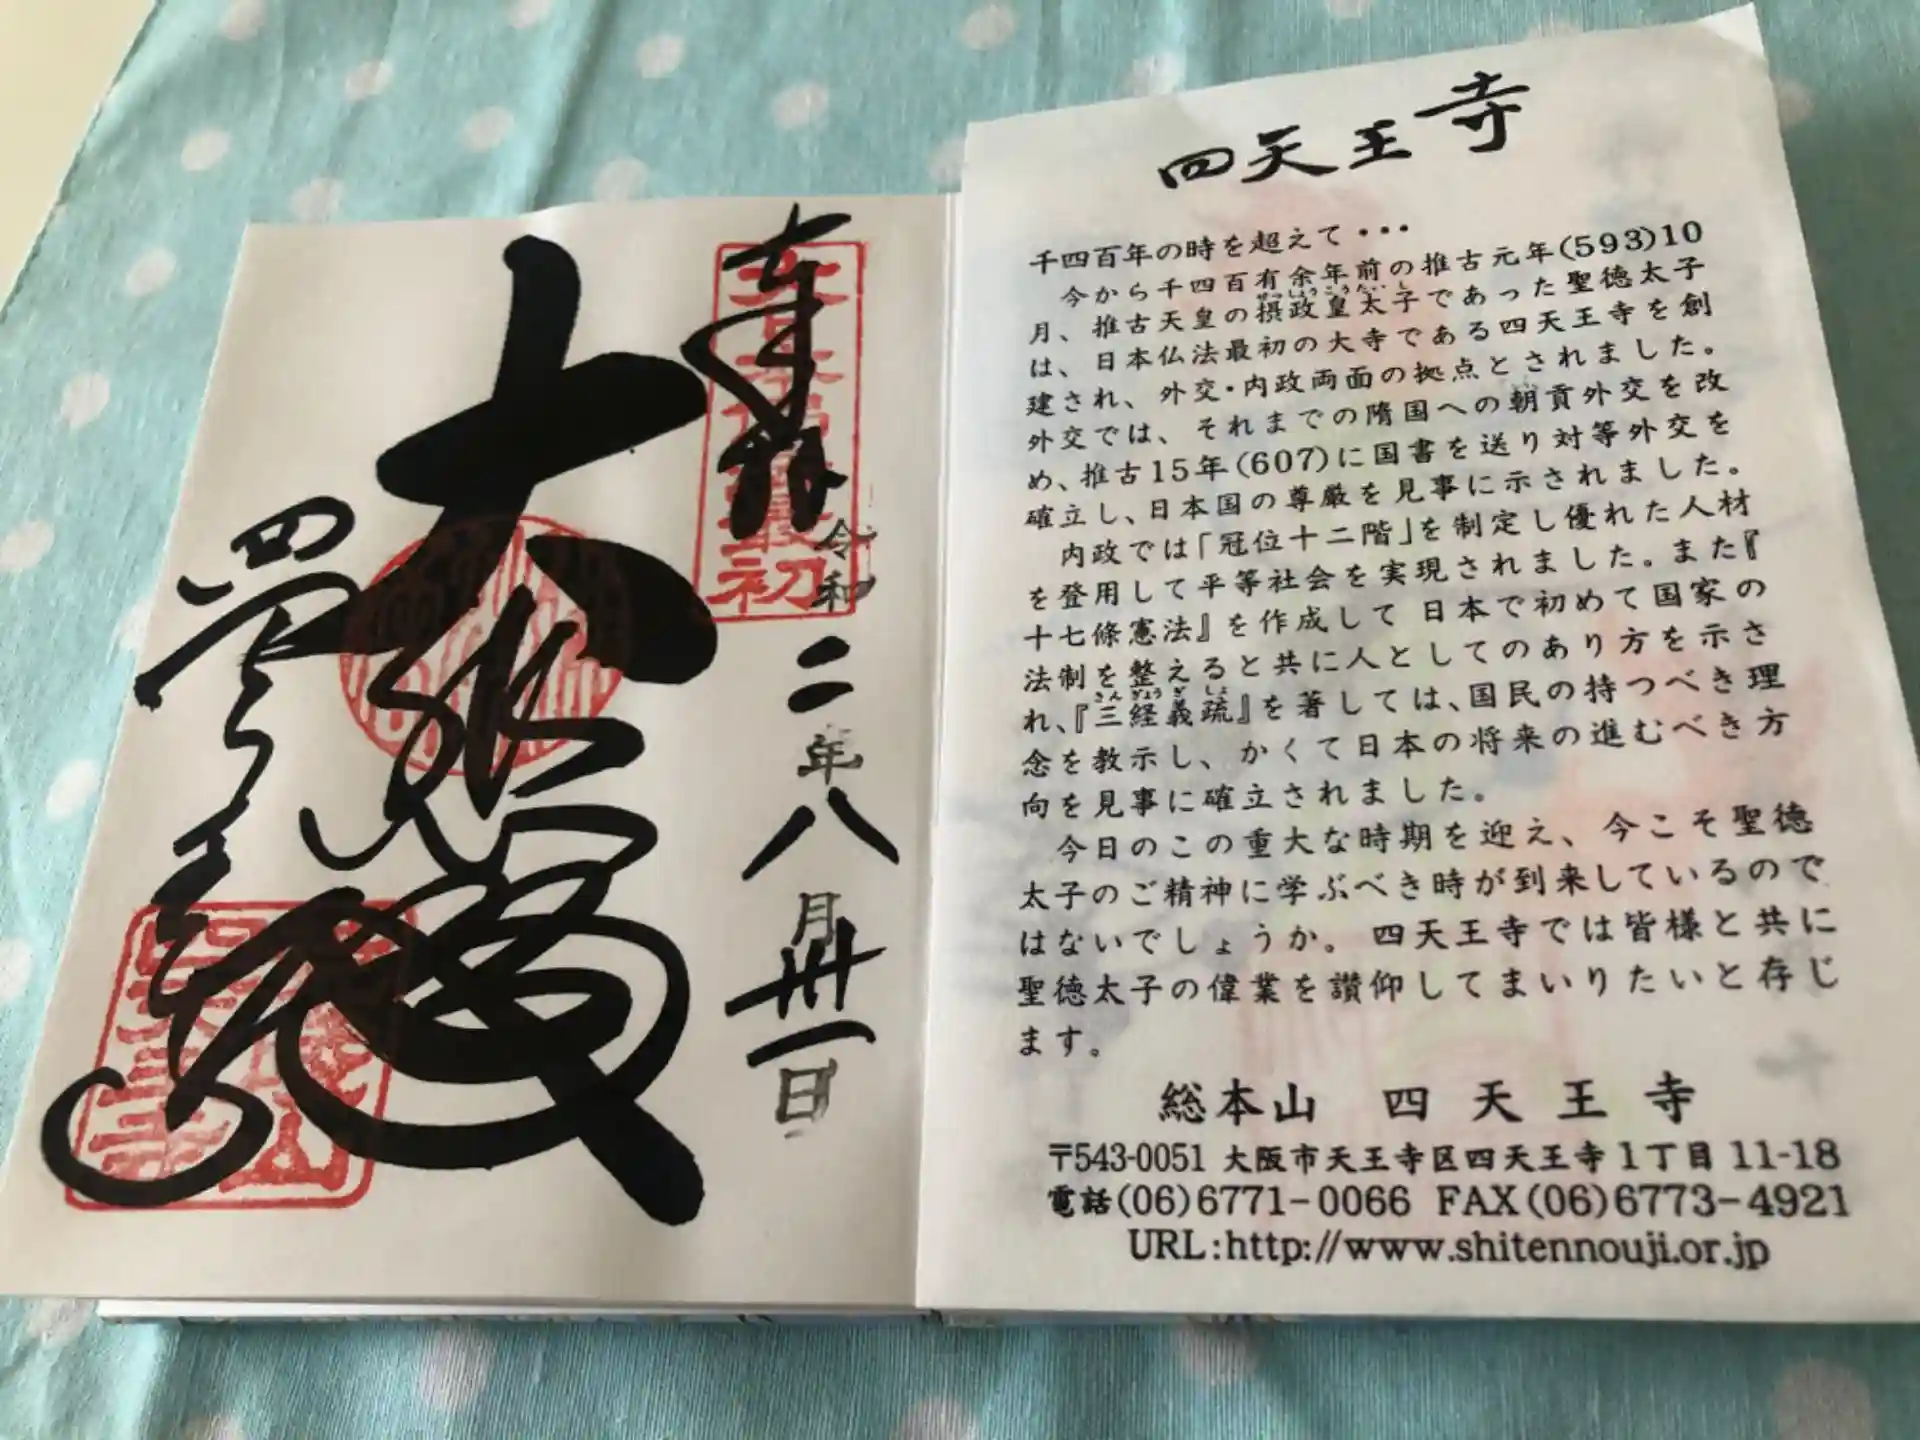 四天王寺
千四百年の時を超えて・・・
今から千四百有余年前の推古元年(593)10
月、推古天皇の摂政皇太子であった聖徳太子
せっしょうこうたいし
は、日本仏法最初の大寺である四天王寺を創
建され、外交・内政両面の拠点とされました。
外交では、それまでの隋国への朝貢外交を改
め、推古15年(607)に国書を送り対等外交を
確立し、日本国の尊厳を見事に示されました。
内政では「冠位十二階」を制定し優れた人材
を登用して平等社会を実現されました。また『
十七條憲法』を作成して 日本で初めて国家の
法制を整えると共に人としてのあり方を示さ
さんぎょうぎしょ
れ、『三経義疏』を著しては、国民の持つべき理
念を教示し、かくて日本の将来の進むべき方
向を見事に確立されました。
今日のこの重大な時期を迎え、今こそ聖徳
太子のご精神に学ぶべき時が到来しているので
はないでしょうか。四天王寺では皆様と共に
聖徳太子の偉業を讃仰してまいりたいと存じ
ます。
総本山 四天王寺
〒543-0051 大阪市天王寺区四天王寺1丁目11-18
電話(06)6771-0066 FAX(06)6773-4921
URL:http://www.shitennouji.or.jp
奉拝
大日本佛法最初
令和二年八月卅一日
大悲殿
四天王寺